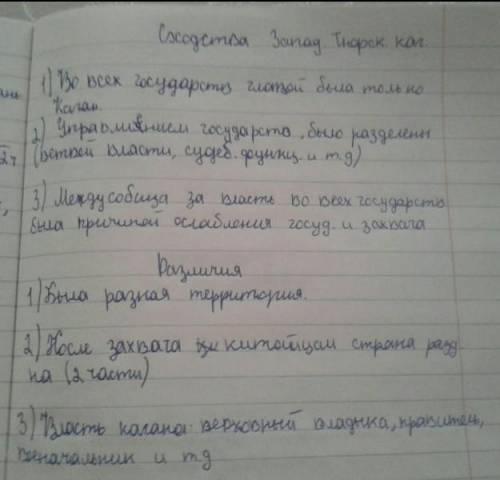 Сходства Запад. Тюрск. каг.
1) Во всех государств главой была только
Каган.
2) Управлением государств, было разделены
(ветвей власти, судеб. функц. и т д)
3) Междусобица за власть во всех государств
была причиной ослабления госуд. и захвата
Различия
1) Была разная территория.
2) После захвата китайцам страна разд
на (2 части)
3) Власть кагана: верховный владыка, правитель,
воначальник и т д